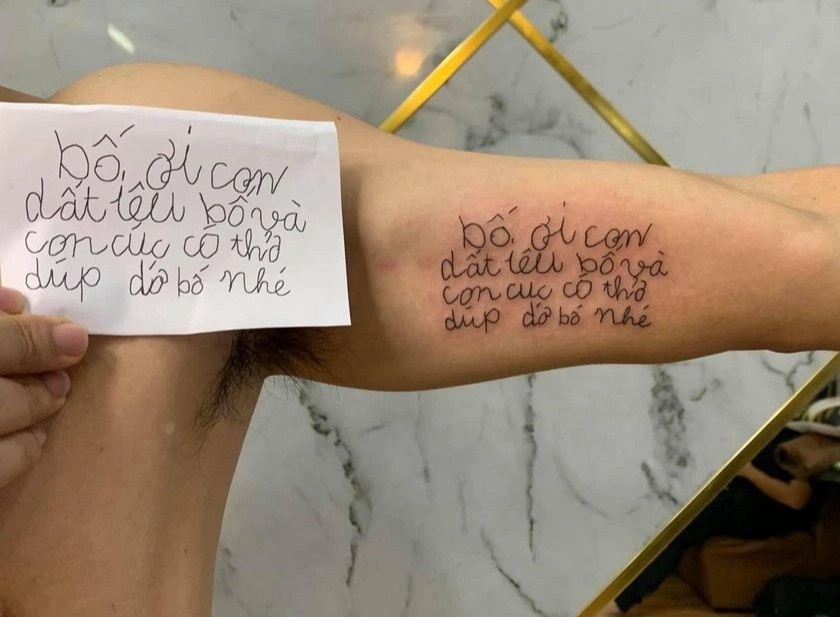 bố ơi con
dất lêu bố và
con cúc có thở
dúp dở bố nhé
bố ơi con
dất lêu bố và
con cuc có thở
dúp dở bố nhé